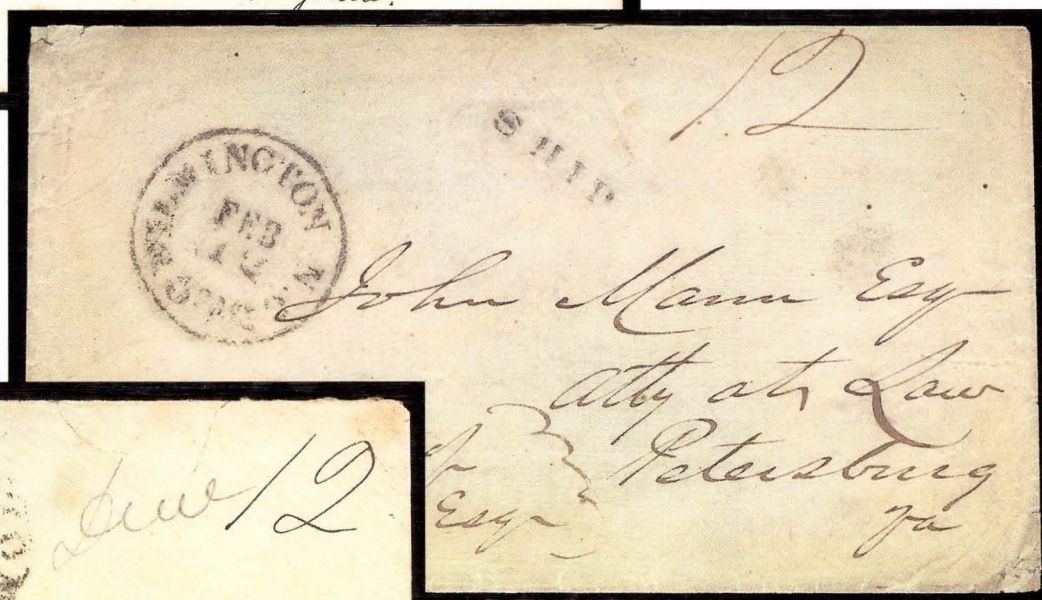 12
SHIP
WILMINGTON N.C.
FEB
12
5 cts
John Mann Esq
atty at Law
Petersburg
Va
Esq
Due 12